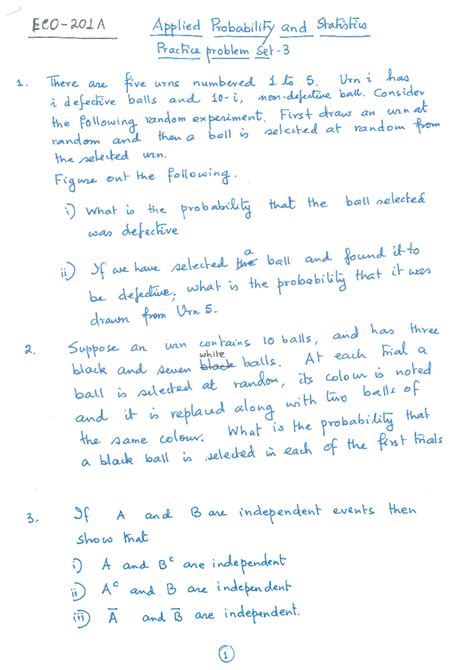 ECO-201A
Applied Probability and Statistics
Practice problem set-3
1. There are five urns numbered 1 to 5. Urn i has
i defective balls and 10-i, non-defective ball. Consider
the following random experiment. First draw an urn at
random and then a ball is selected at random from
the selected urn.
Figure out the following.
i) What is the probability that the ball selected
was defective
ii) If we have selected the a ball and found it to
be defective, what is the probability that it was
drawn from Urn 5.
2. Suppose an urn contains 10 balls, and has three
black and seven black white balls. At each trial a
ball is selected at random, its colour is noted
and it is replaced along with two balls of
the same colour. What is the probability that
a black ball is selected in each of the first trials
3. If A and B are independent events then
show that
i) A and Bᶜ are independent
ii) Aᶜ and B are independent
iii) A̅ and B̅ are independent.
1